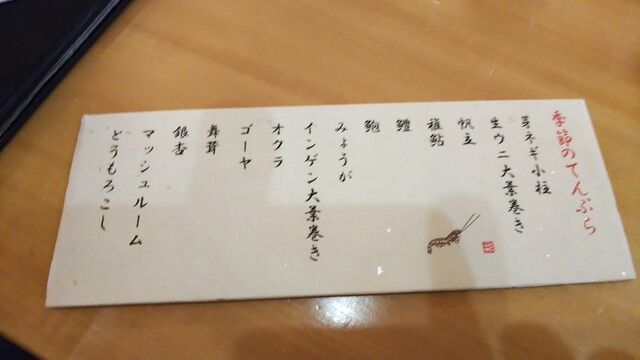 季節のてんぷら
芽ネギ小柱
生ウニ大葉巻き
帆立
稚鮎
鱧
鮑
みょうが
インゲン大葉巻き
オクラ
ゴーヤ
舞茸
銀杏
マッシュルーム
とうもろこし